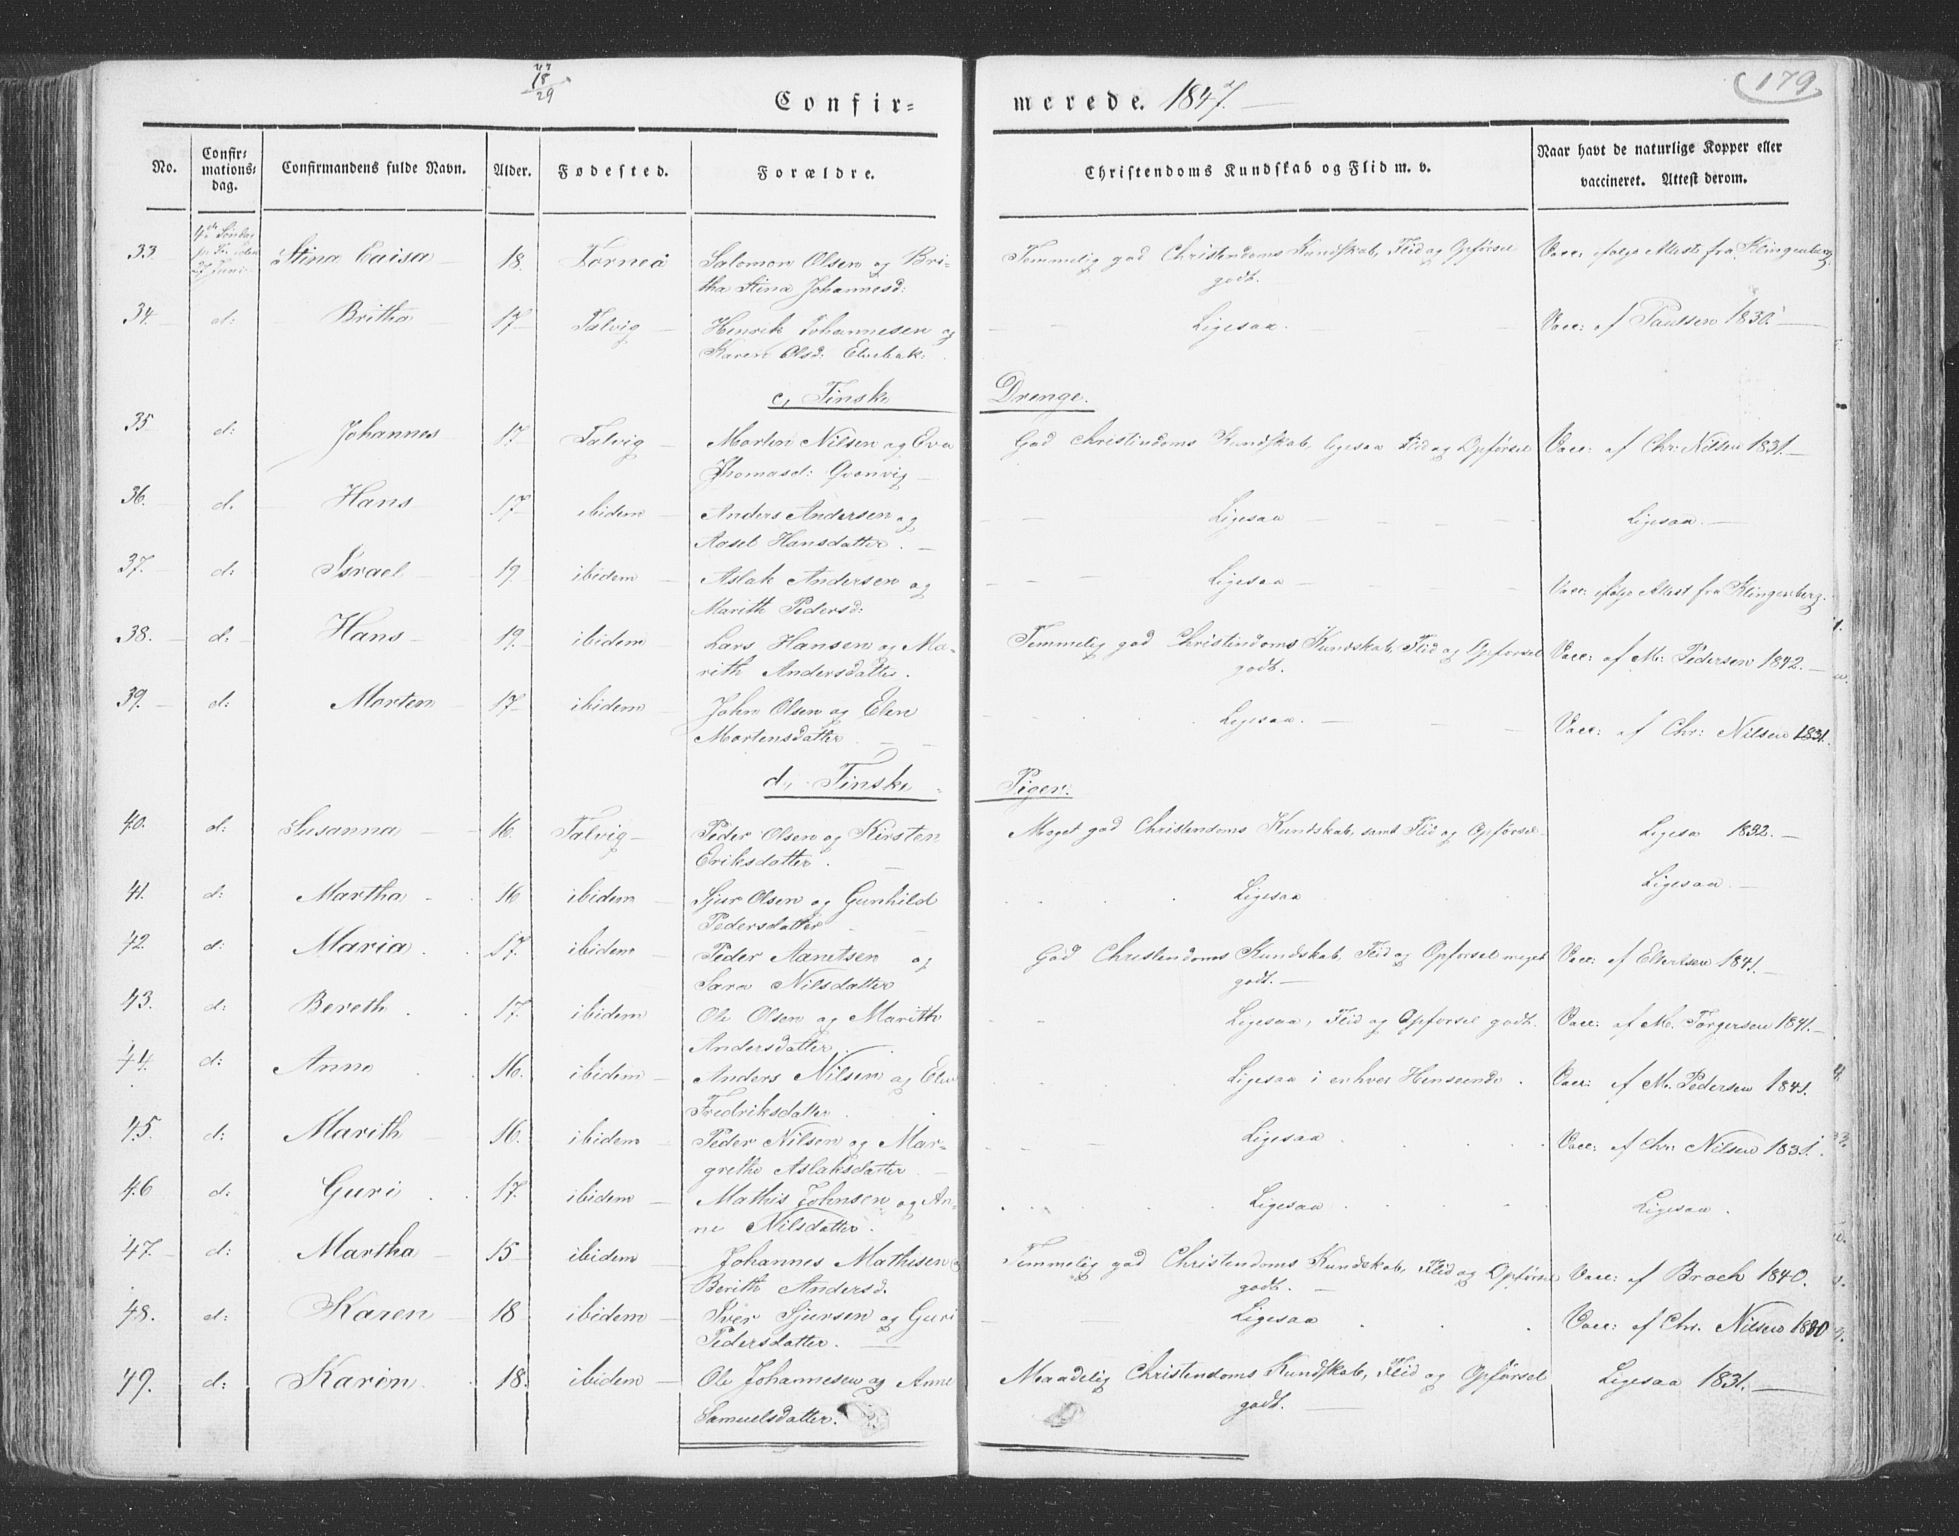 18
29
179.
Confir=
merede. 1847.
No.
Confir=
mations=
dag.
Confirmandens fulde Navn.
Alder.
Fødested.
Forældre.
Christendoms Kundskab og Flid m. v.
Naar havt de naturlige Kopper eller
vaccineret. Attest derom.
33. Stina Caisa 18. Torneå Salomon Olsen og Bri- Temmelig god Christendoms Kundskab, Flid og Opførsel Vacc: ifølge Attest fra Klingenberg.
tha Stina Johannesd: godt.
34. d: Britha 17 Talvig Henrik Johannesen og Ligesaa. Vacc: af Paulsen 1830.
Karen Olsd: Elvebak.
c, Finske Drenge.
35 d: Johannes 17 Talvig Morten Nilsen og Eva God Christendoms Kundskab, ligesaa Flid og Opførsel Vacc: af Chr: Nilsen 1831.
Thomasd: Qvænvig
36. d. Hans 17 ibidem Anders Andersen og Ligesaa Ligesaa.
Aasel Hansdatter.
37. d: Israel 19 ibidem Aslak Andersen og Ligesaa Vacc: ifølge Attest fra Klingenberg.
Marith Pedersd:
38. d: Hans 19. ibidem Lars Hansen og Ma- Temmelig god Christendoms Kundskab, Flid og Opførsel Vacc: af M: Pedersen 1842.
rith Andersdatter. godt.
39. d: Morten 17 ibidem John Olsen og Elen Ligesaa. Vacc: af Chr: Nilsen 1831.
Mortensdatter
d, Finske Piger.
40. d: Susanna 16. Talvig Peder Olsen og Kirsten Meget god Christendoms Kundskab, samt Flid og Opførsel Ligesa 1832.
Eriksdatter.
41. d: Martha 16 ibidem Sjur Olsen og Gunhild Ligesaa Ligesaa.
Pedersdatter
42. d: Maria. 17. ibidem Peder Aanetsen og God Christendoms Kundskab, Flid og Opførsel meget Vacc: af Ellertsen 1841.
Sara Nilsdatter godt.
43. d: Bereth 17. ibidem Ole Olsen og Marith Ligesaa, Flid og Opførsel godt. Vacc: af M. Torgersen 1841.
Andersdatter.
44. d: Anne 16. ibidem Anders Nilsen og Elen Ligesaa i enhver Henseende. Vacc: af M. Pedersen 1841.
Fredriksdatter
45. d: Marith 16. ibidem Peder Nilsen og Mar- Ligesaa Vacc: af Chr: Nilsen 1831.
grethe Aslaksdatter
46 d: Guri 17. ibidem Mathis Johnsen og An- Ligesaa Ligesaa.
ne Nilsdatter.
47. d: Martha 15 ibidem Johannes Mathisen og Temmelig god Christendoms Kundskab, Flid og Opførsel Vacc: af Broch 1840.
Berith Andersd. godt.
48. d: Karen 18 ibidem Iver Sjursen og Guri Ligesaa Vacc: af Chr. Nilsen
Pedersdatter.
49. d: Karin 18. ibidem Ole Johannesen og Anne Maadelig Christendoms Kundskab, Flid og Opførsel Ligesaa 1831.
Samuelsdatter. godt.